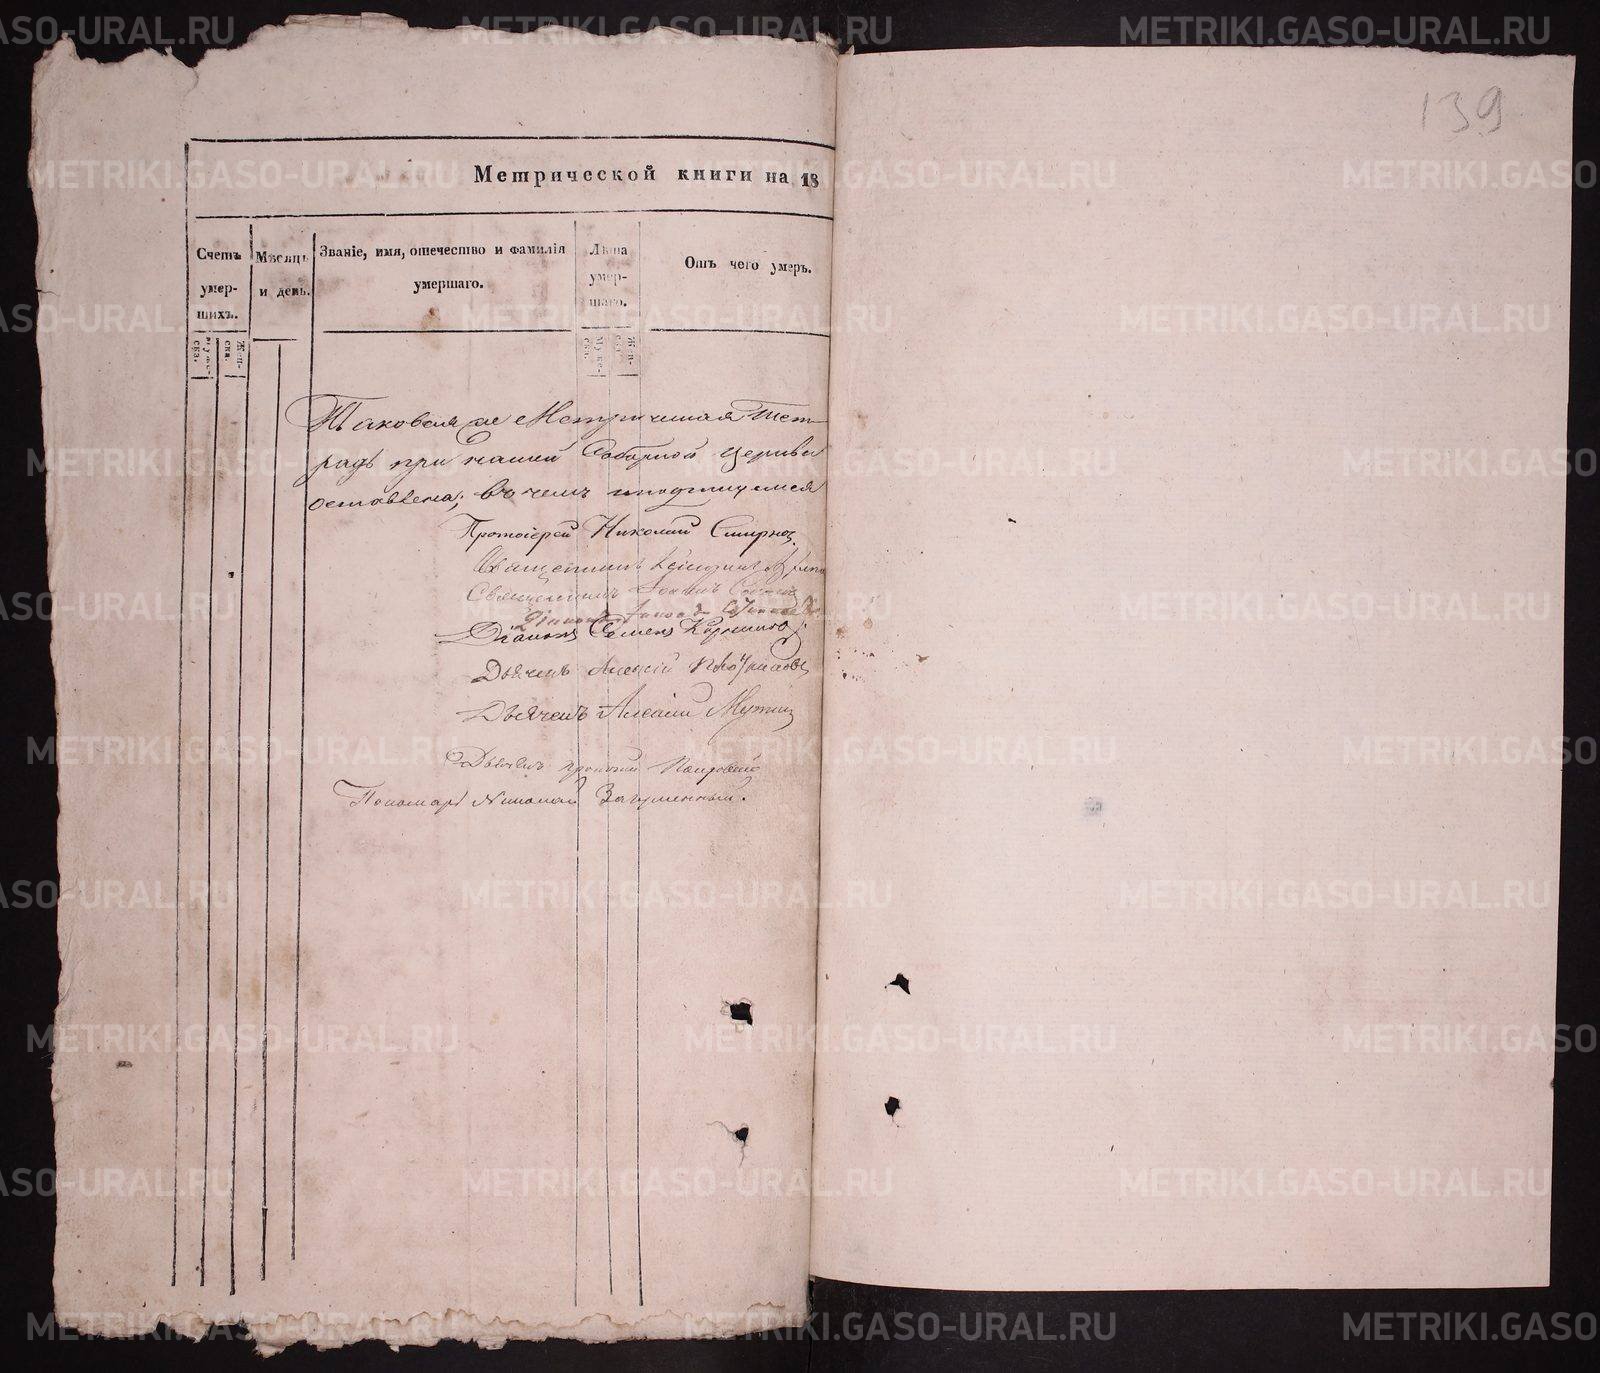 139
Метрической книги на 18
Счетъ умер-шихъ.
Мѣсяцъ и день.
Званіе, имя, отечество и фамилія умершаго.
Лѣта умер-шаго.
Отъ чего умеръ.
Муже-ска.
Жен-ска.
Муже-ска.
Жен-ска.
Таковая же Метричиная Тет-
радь при нашей Соборной церкви
оставлена; въ чемъ подпишемся
Протоіерей Николай Смирнов
Священникъ
Священникъ Іоаннъ
Діаконъ
Діаконъ Семенъ
Дьячекъ Алексій
Дьячекъ Алексій
Дьячекъ
Пономарь Николай Загуменный.
METRIKI.GASO-URAL.RU